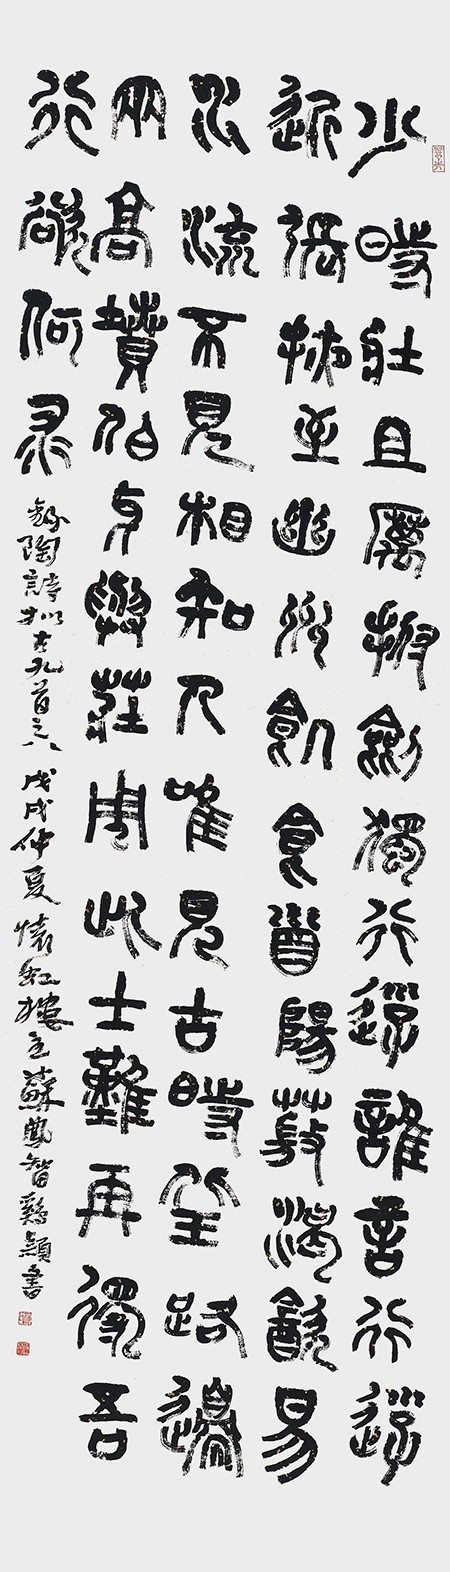 少時壯且厲撫劍獨行遊誰言行遊
近張掖至幽州飢食首陽薇渴飲易
水流不見相知人唯見古時丘路邊
兩高墳伯牙與莊周此士難再得吾
行欲何求
錄陶詩拟古九首之八 戊戌仲夏懷虹樓主蘇鳳智雞穎書